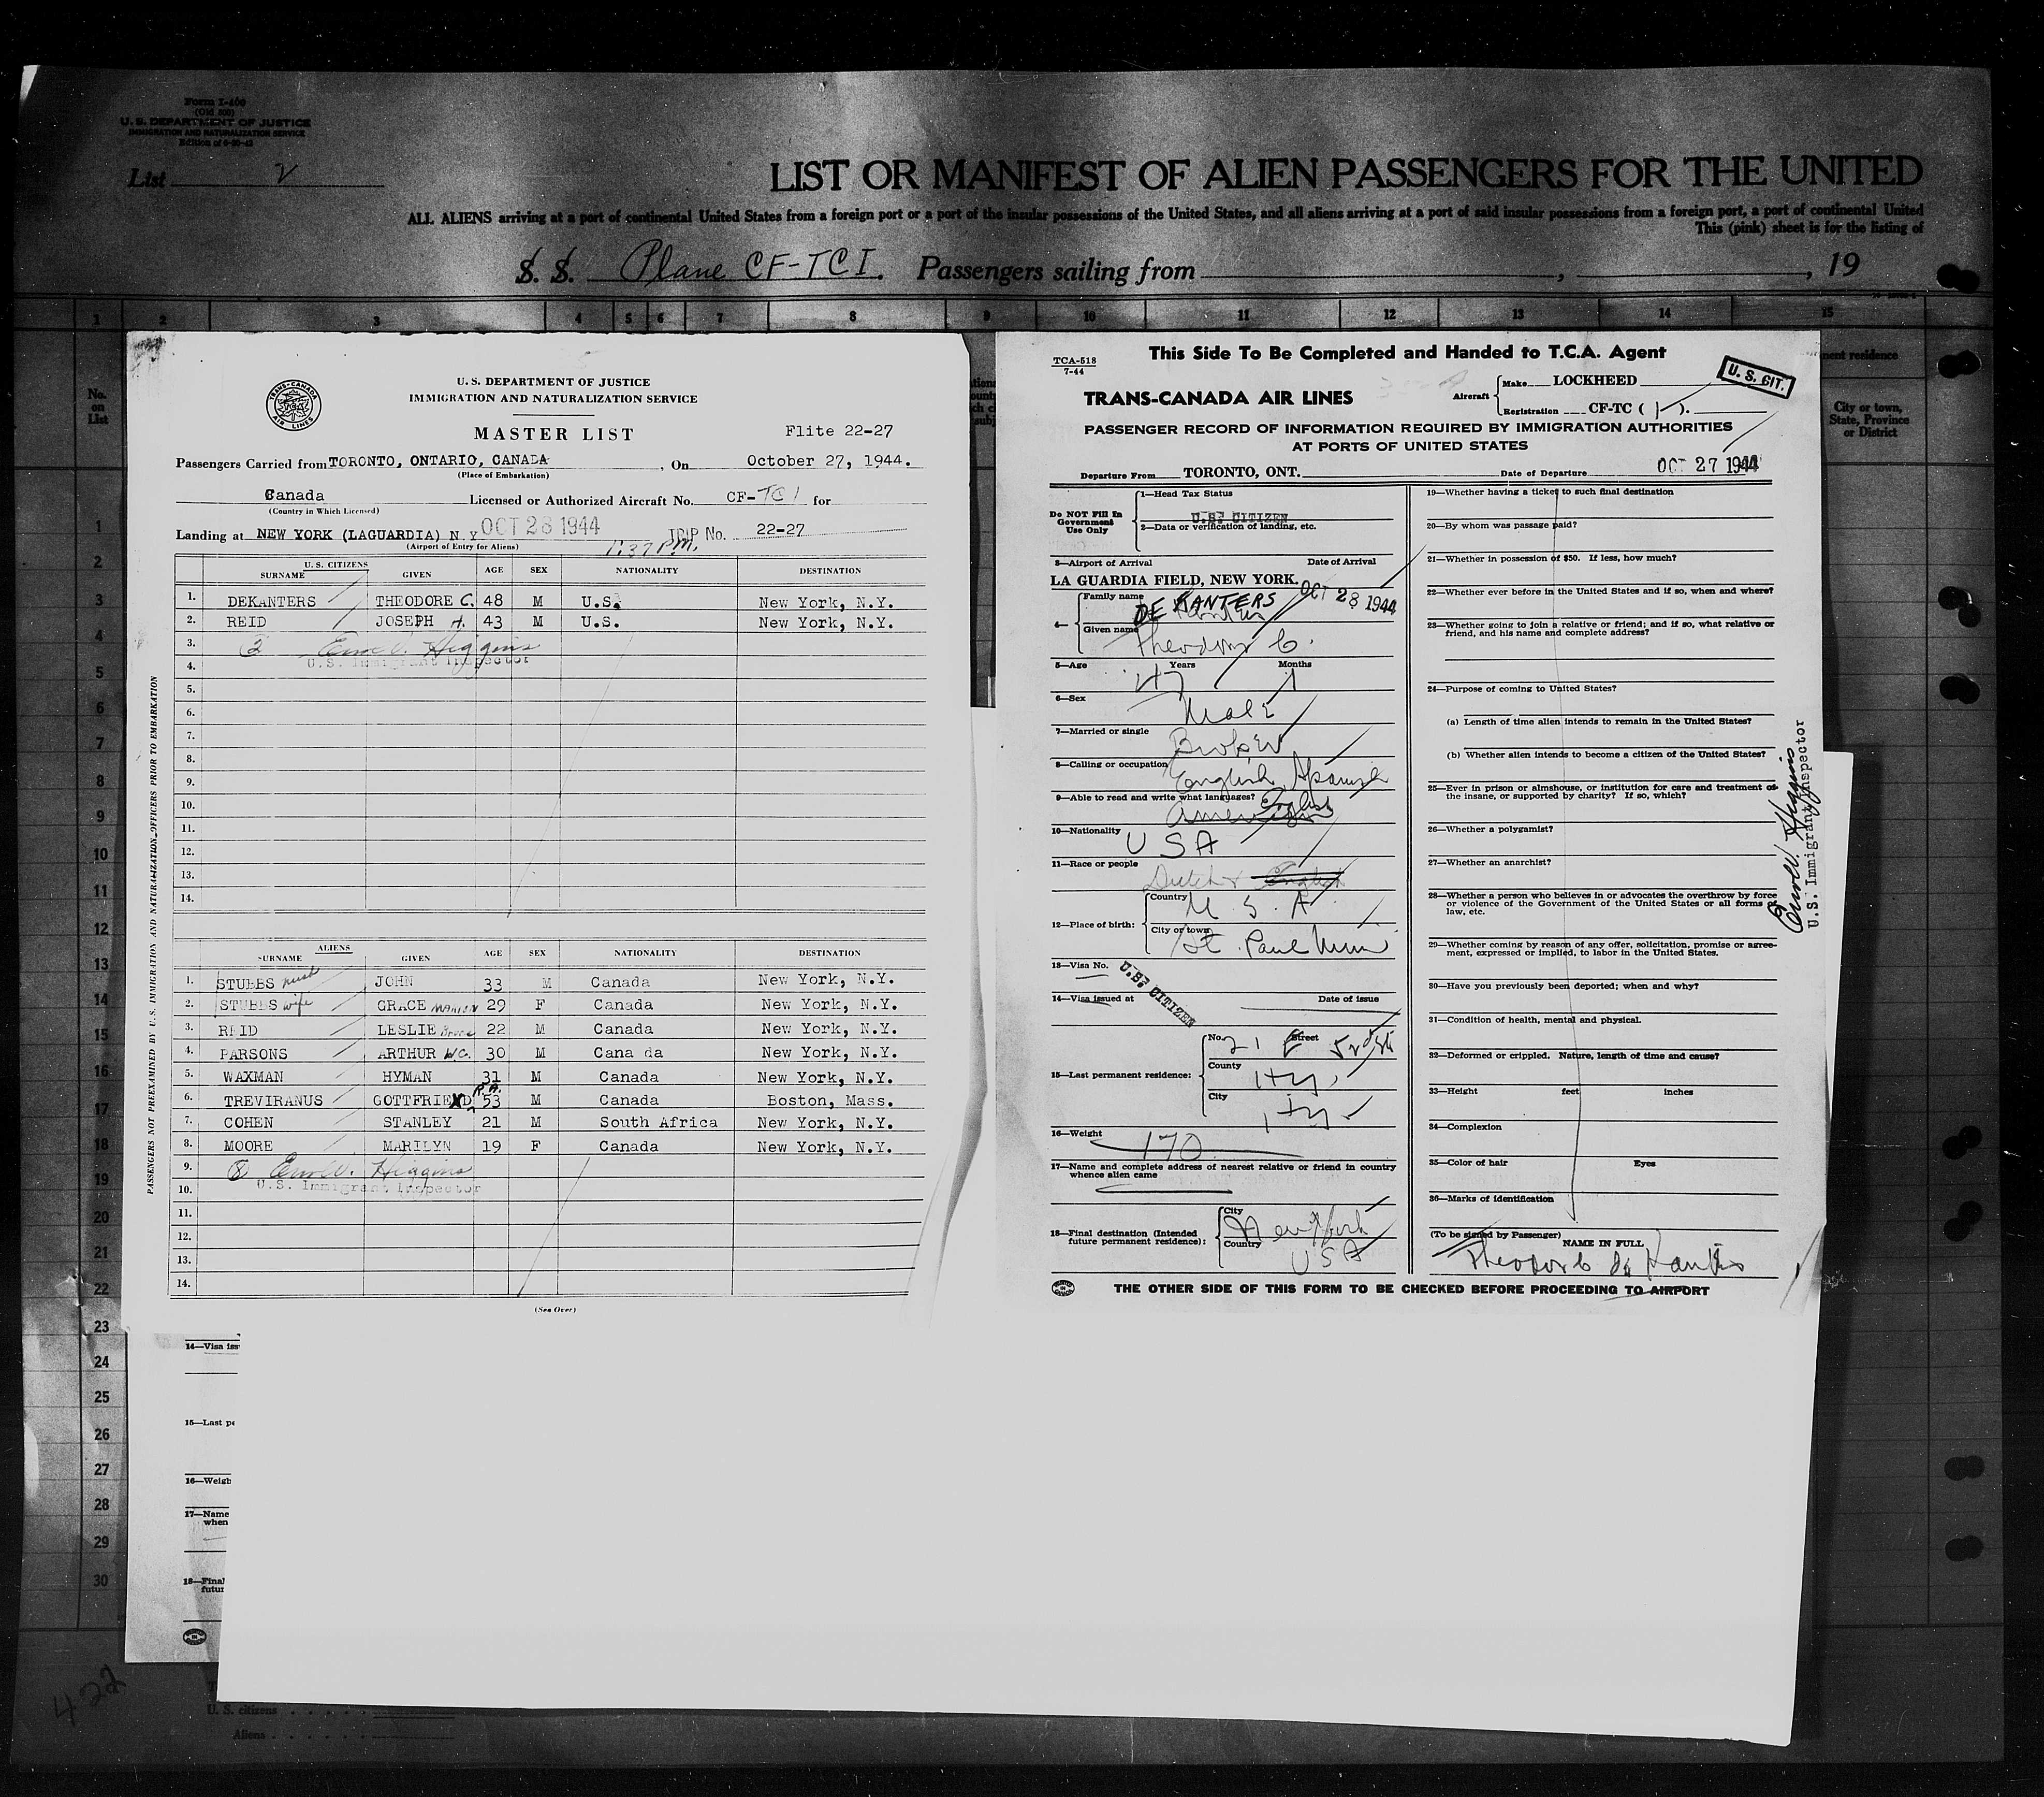 Form I-400
(Old 500)
U. S. DEPARTMENT OF JUSTICE
IMMIGRATION AND NATURALIZATION SERVICE
Edition of 6-20-43
List 2
LIST OR MANIFEST OF ALIEN PASSENGERS FOR THE UNITED
ALL ALIENS arriving at a port of continental United States from a foreign port or a port of the insular possessions of the United States, and all aliens arriving at a port of said insular possessions from a foreign port, a port of continental United
This (pink) sheet is for the listing of
S. S. Plane CF-TCI. Passengers sailing from , , 19
1 2 3 4 5 6 7 8 9 10 11 12 13 14 15
No. on List
City or town, State, Province or District
1
2
3
4
5
6
7
8
9
10
11
12
13
14
15
16
17
18
19
20
21
22
23
24
25
26
27
28
29
30
TRANS-CANADA AIR LINES
U. S. DEPARTMENT OF JUSTICE
IMMIGRATION AND NATURALIZATION SERVICE
MASTER LIST Flite 22-27
Passengers Carried from TORONTO, ONTARIO, CANADA, On October 27, 1944.
(Place of Embarkation)
Canada Licensed or Authorized Aircraft No. CF-TCI for
(Country in Which Licensed)
Landing at NEW YORK (LAGUARDIA) N.Y OCT 28 1944 TRIP No. 22-27
(Airport of Entry for Aliens) 1:37 P.M.
U. S. CITIZENS
SURNAME GIVEN AGE SEX NATIONALITY DESTINATION
1. DEKANTERS THEODORE C. 48 M U.S. New York, N.Y.
2. REID JOSEPH H. 43 M U.S. New York, N.Y.
3. 2 Errol W. Higgins
4. U.S. Immigrant Inspector
5.
6.
7.
8.
9.
10.
11.
12.
13.
14.
ALIENS
SURNAME GIVEN AGE SEX NATIONALITY DESTINATION
1. STUBBS husb JOHN 33 M Canada New York, N.Y.
2. STUBBS wife GRACE MARION 29 F Canada New York, N.Y.
3. REID LESLIE Bruce 22 M Canada New York, N.Y.
4. PARSONS ARTHUR W.C. 30 M Cana da New York, N.Y.
5. WAXMAN HYMAN 31 M Canada New York, N.Y.
6. TREVIRANUS GOTTFRIEXD R.A. 53 M Canada Boston, Mass.
7. COHEN STANLEY 21 M South Africa New York, N.Y.
8. MOORE MARILYN 19 F Canada New York, N.Y.
9. 8 Errol W. Higgins
10. U.S. Immigrant Inspector
11.
12.
13.
14.
(See Over)
PASSENGERS NOT PREEXAMINED BY U.S. IMMIGRATION AND NATURALIZATION OFFICERS PRIOR TO EMBARKATION
TCA-518
7-44
This Side To Be Completed and Handed to T.C.A. Agent
U. S. CIT.
TRANS-CANADA AIR LINES
Aircraft Make LOCKHEED
Registration CF-TC ( I ).
PASSENGER RECORD OF INFORMATION REQUIRED BY IMMIGRATION AUTHORITIES
AT PORTS OF UNITED STATES
Departure From TORONTO, ONT. Date of Departure OCT 27 1944
Do NOT Fill in Government Use Only
1—Head Tax Status
U.S. CITIZEN
2—Data or verification of landing, etc.
3—Airport of Arrival Date of Arrival
LA GUARDIA FIELD, NEW YORK. OCT 28 1944
4— Family name DE KANTERS
Given name Theodore C.
5—Age Years 47 Months 1
6—Sex Male
7—Married or single
Broker
8—Calling or occupation
English Spanish
9—Able to read and write what languages? English
American
10—Nationality USA
11—Race or people Dutch English
12—Place of birth: Country U. S. A
City or town St. Paul Minn
13—Visa No. U.S. CITIZEN
14—Visa issued at Date of issue
15—Last permanent residence: No. 21 E Street 52d St
County
City
16—Weight 170
17—Name and complete address of nearest relative or friend in country whence alien came
18—Final destination (Intended future permanent residence): City New York
Country USA
19—Whether having a ticket to such final destination
20—By whom was passage paid?
21—Whether in possession of $50. If less, how much?
22—Whether ever before in the United States and if so, when and where?
23—Whether going to join a relative or friend; and if so, what relative or friend, and his name and complete address?
24—Purpose of coming to United States?
(a) Length of time alien intends to remain in the United States?
(b) Whether alien intends to become a citizen of the United States?
25—Ever in prison or almshouse, or institution for care and treatment of the insane, or supported by charity? If so, which?
26—Whether a polygamist?
27—Whether an anarchist?
28—Whether a person who believes in or advocates the overthrow by force or violence of the Government of the United States or all forms of law, etc.
29—Whether coming by reason of any offer, solicitation, promise or agreement, expressed or implied, to labor in the United States.
30—Have you previously been deported; when and why?
31—Condition of health, mental and physical.
32—Deformed or crippled. Nature, length of time and cause?
33—Height feet inches
34—Complexion
35—Color of hair Eyes
36—Marks of identification
(To be signed by Passenger) NAME IN FULL
Theodor C de Kanters
THE OTHER SIDE OF THIS FORM TO BE CHECKED BEFORE PROCEEDING TO AIRPORT
Errol W. Higgins
U.S. Immigrant Inspector
14—Visa iss
15—Last pe
16—Weigh
17—Name
when
18—Final
futur
422
U. S. citizens
Aliens